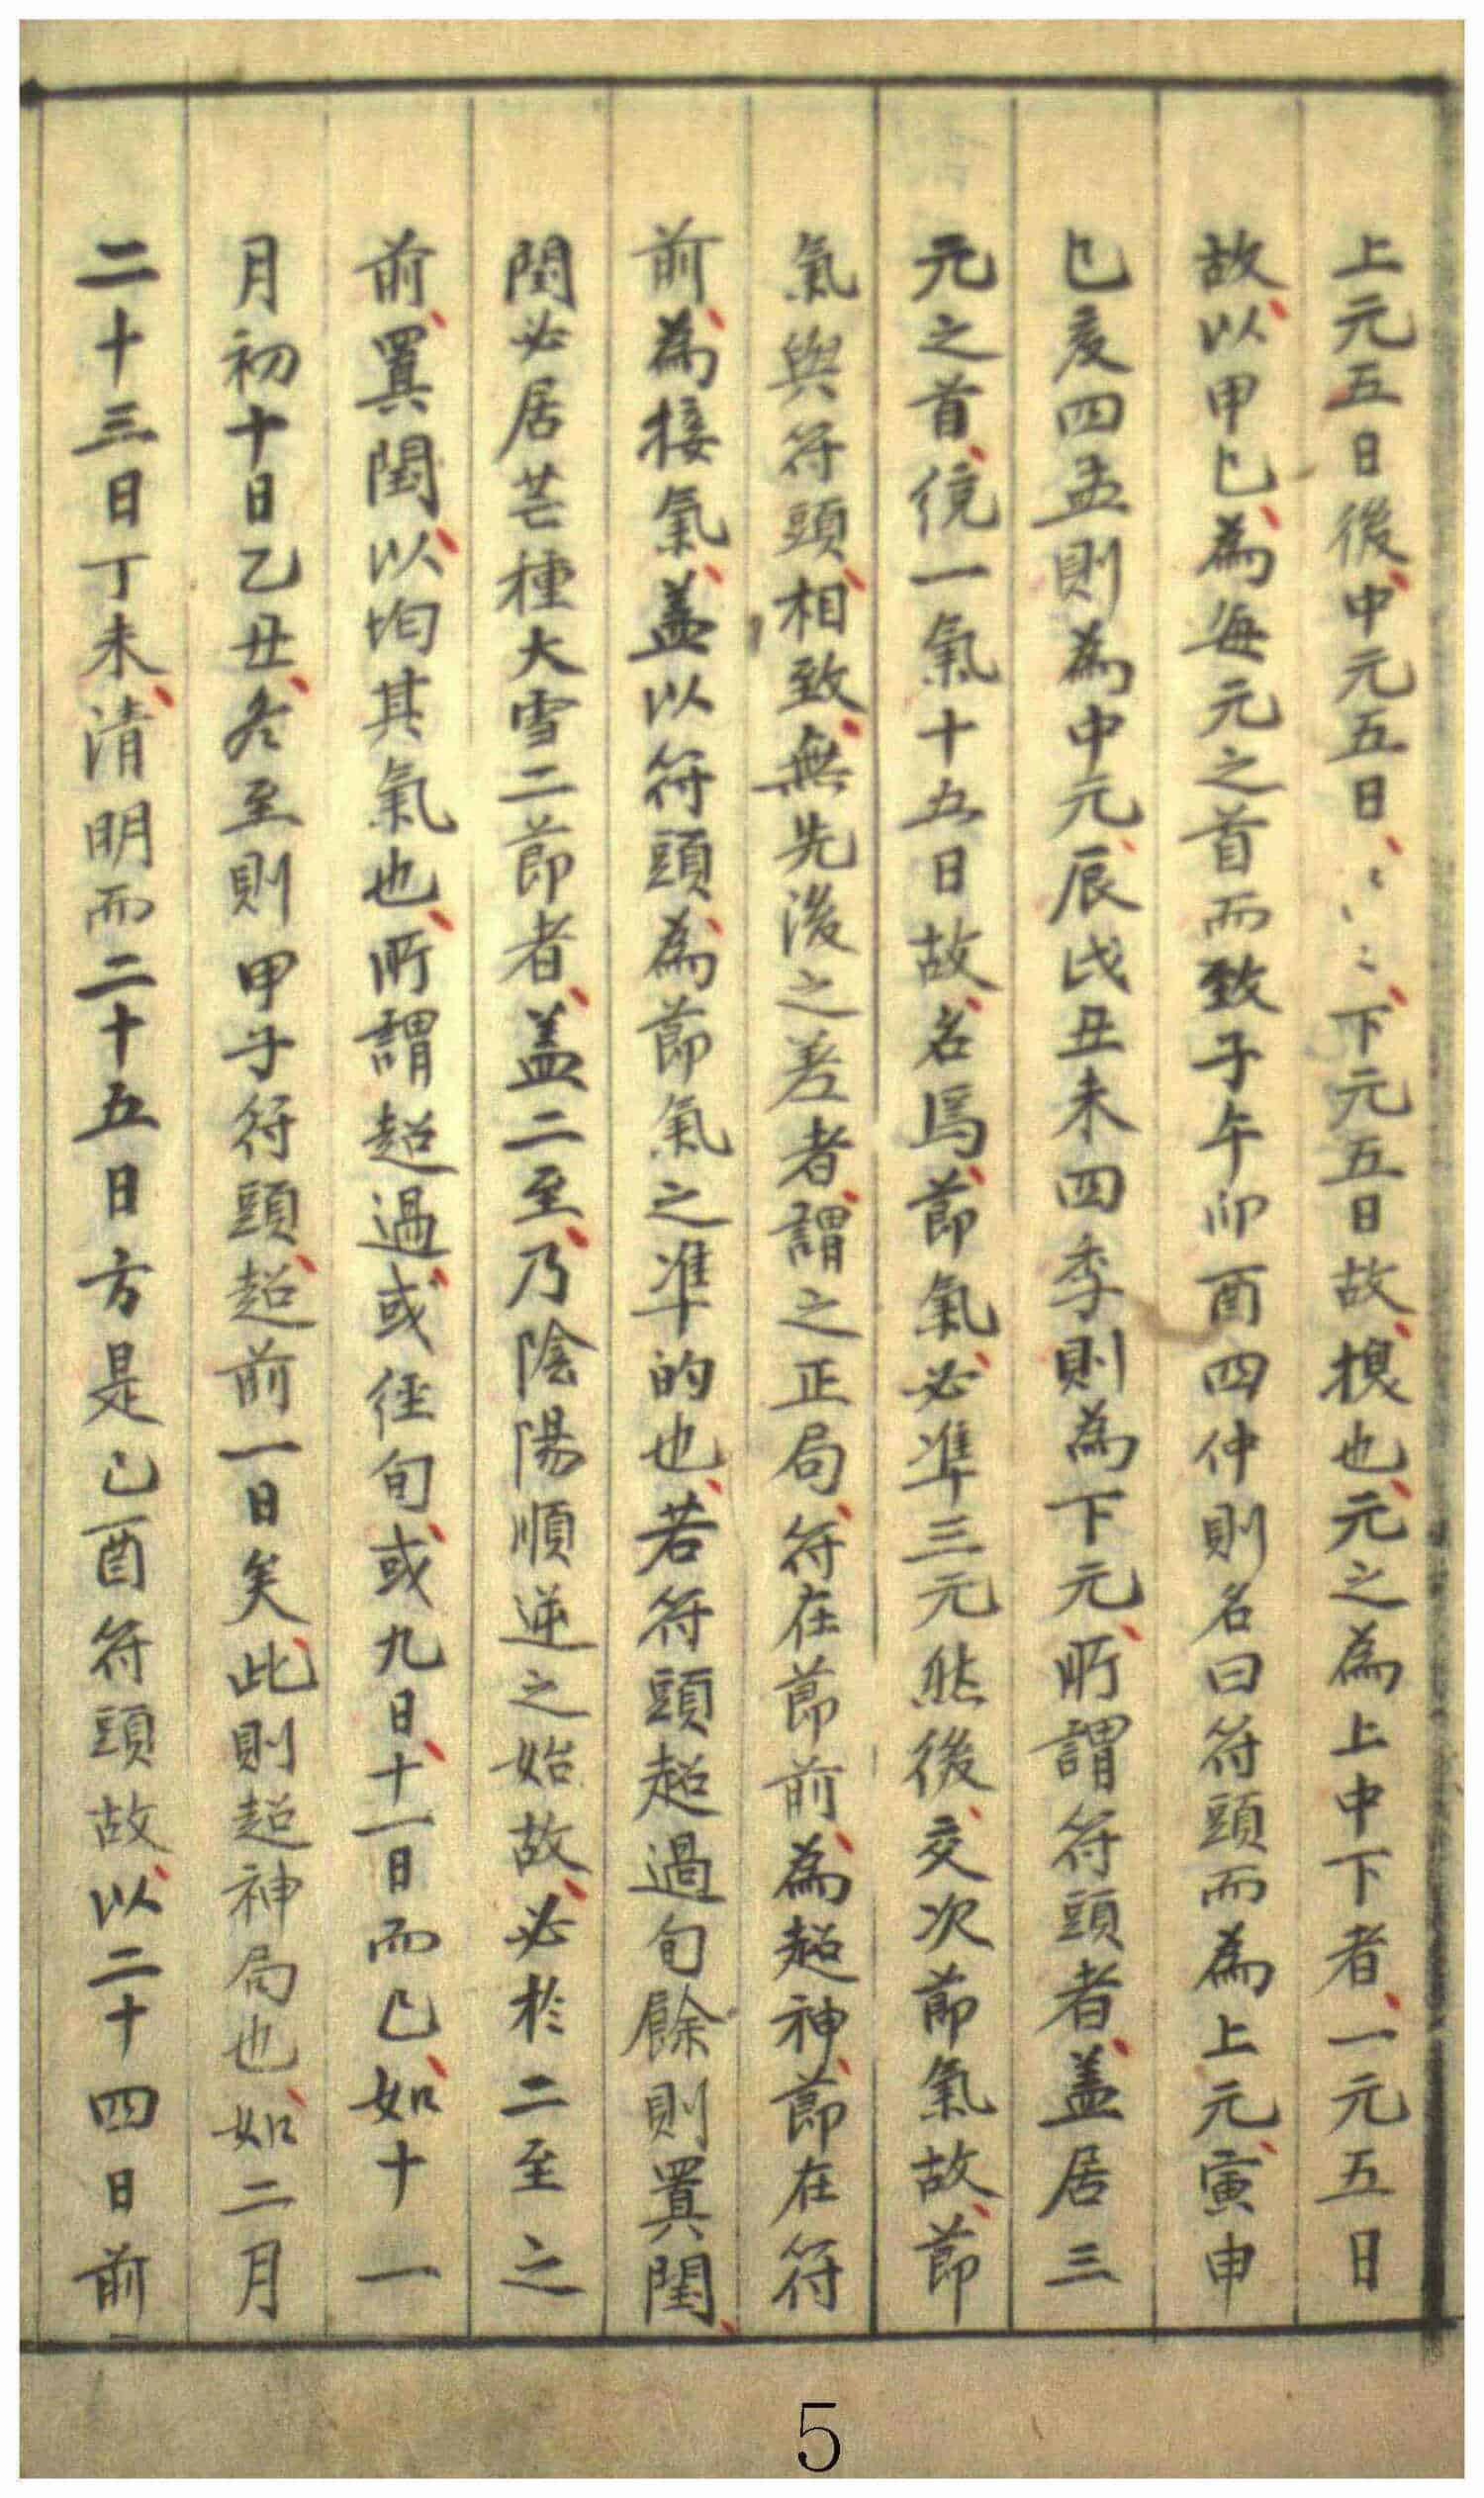 上元五日後中元五日〻〻〻〻下元五日故摠也元之為上中下者一元五日
故以甲己為每元之首而致子午卯酉四仲則名曰符頭而為上元寅申
巳亥四孟則為中元辰戌丑未四季則為下元所謂符頭者盖居三
元之首統一氣十五日故名焉節氣必準三元然後交次節氣故節
氣與符頭相致無先後之差者謂之正局符在節前為超神節在符
前為接氣盖以符頭為節氣之準的也若符頭超過旬餘則置閏
閏必居芒種大雪二節者盖二至乃陰陽順逆之始故必於二至之
前置閏以均其氣也所謂超過或侄旬或九日十一日而已如十一
月初十日乙丑冬至則甲子符頭超前一日矣此則超神局也如二月
二十三日丁未清明而二十五日方是己酉符頭故以二十四日前
5